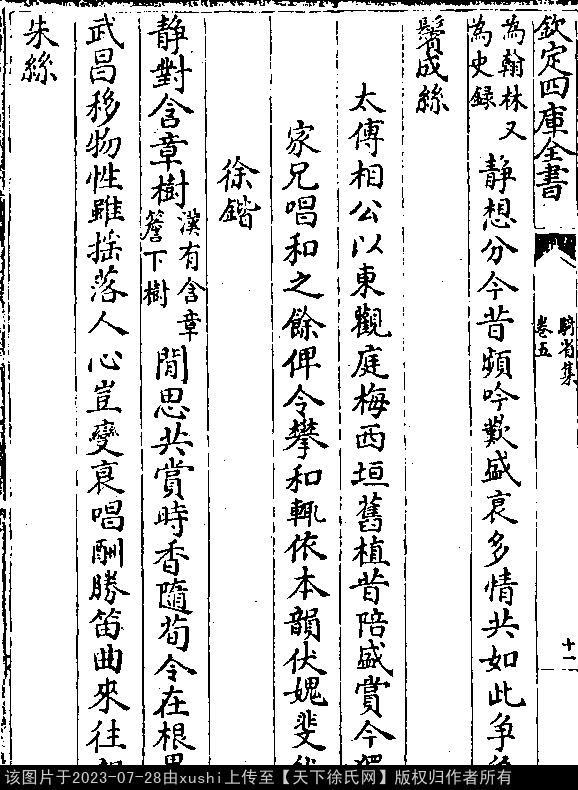 欽定四庫全書
騎省集
卷五
十二
為翰林又
為史録
静想分今昔頻吟歎盛衰多情共如此争
鬢成絲
太傅相公以東觀庭梅西垣舊植昔陪盛賞今獨
家兄唱和之餘俾令攀和輒依本韻伏媿斐
徐鍇
静對含章樹
漢有含章
簷下樹
閒思共賞時香隨荀令在根
武昌移物性雖揺落人心豈變衰唱酬勝笛曲來往
朱絲
该图片于2023-07-28由xushi上传至【天下徐氏网】版权归作者所有